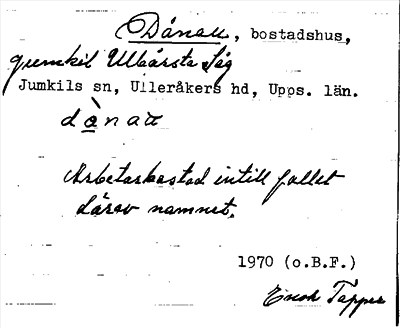 Dånau, bostadshus,
Jumkil Ulbårsta Såg
Jumkils sn, Ulleråkers hd, Upps. län.
dànau
Arbetarbostad intill fallet
därav namnet.
1970 (o.B.F.)
Enok Tapper